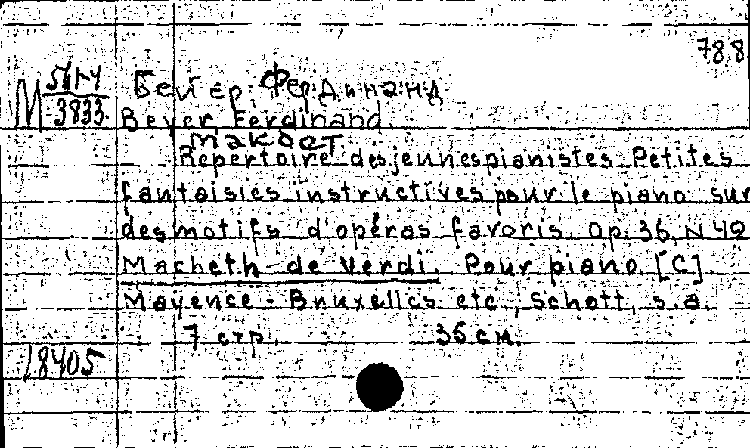 788
М 56г4
3833
Бейер Фердинанд
Beyer Ferdinand
Макбет
Repertoire des jeunes pianistes Petites
fantaisies instructives pour le piano sur
des motifs d'opéras favoris. Op. 36, N 42
Macbeth de Verdi. Pour piano [C]
Mayence - Bruxelles etc., Schott, s.a.
7 стр. 36 см.
18405